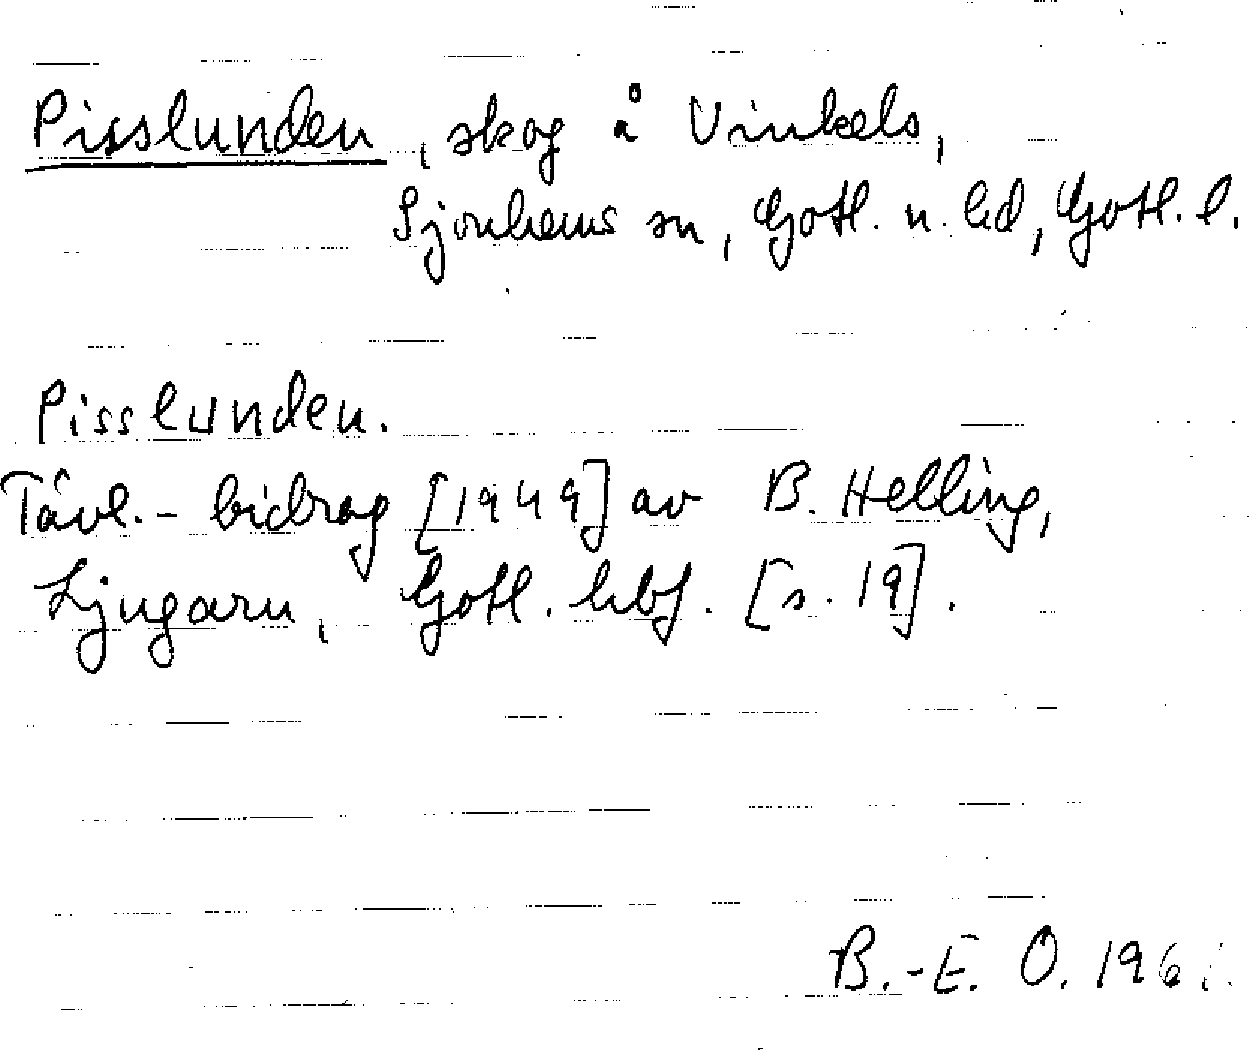 Pisslunden, skog å Vinkels,
Sjonhems sn, Gotl. n. hd, Gotl. l.
Pisslunden.
Tävl.-bidrag [1949] av B. Helling,
Ljugarn, Gotl. hbf. [s. 19].
B.-E. O.